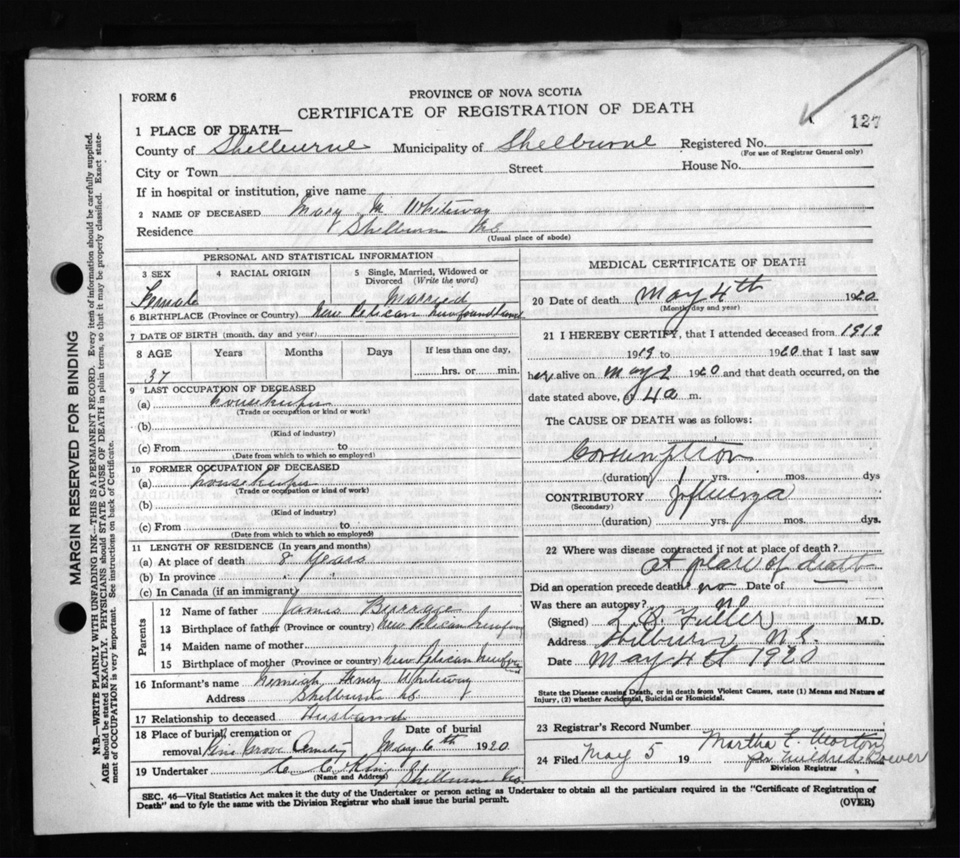 FORM 6
PROVINCE OF NOVA SCOTIA
CERTIFICATE OF REGISTRATION OF DEATH
127
1 PLACE OF DEATH—
County of Shelburne Municipality of Shelburne Registered No.
(For use of Registrar General only)
City or Town Street House No.
If in hospital or institution, give name
2 NAME OF DECEASED Mary M. Whiteway
Residence Shelburn N.S
(Usual place of abode)
MARGIN RESERVED FOR BINDING
N.B.—WRITE PLAINLY WITH UNFADING INK—THIS IS A PERMANENT RECORD. Every item of information should be carefully supplied.
AGE should be stated EXACTLY. PHYSICIANS should STATE CAUSE OF DEATH in plain terms, so that it may be properly classified. Exact state-
ment of OCCUPATION is very important. See instructions on back of Certificate.
PERSONAL AND STATISTICAL INFORMATION
3 SEX
Female
4 RACIAL ORIGIN
5 Single, Married, Widowed or
Divorced (Write the word)
Married
6 BIRTHPLACE (Province or Country) New Pelican Newfoundland
7 DATE OF BIRTH (month, day and year)
8 AGE Years Months Days If less than one day,
37 hrs. or min.
9 LAST OCCUPATION OF DECEASED
(a) housekeeper
(Trade or occupation or kind of work)
(b)
(Kind of industry)
(c) From to
(Date from which to which so employed)
10 FORMER OCCUPATION OF DECEASED
(a) housekeeper
(Trade or occupation or kind of work)
(b)
(Kind of industry)
(c) From to
(Date from which to which so employed)
11 LENGTH OF RESIDENCE (In years and months)
(a) At place of death 8 Years
(b) In province
(c) In Canada (if an immigrant)
Parents
12 Name of father James Burrage
13 Birthplace of father (Province or country) New Pelican
14 Maiden name of mother
15 Birthplace of mother (Province or country) New Pelican
16 Informant's name Henry Whiteway
Address Shelburne
17 Relationship to deceased Husband
18 Place of burial, cremation or
removal Pine Grove Cemetery
Date of burial
May 6th 1920
19 Undertaker Shelburn
(Name and Address)
MEDICAL CERTIFICATE OF DEATH
20 Date of death May 4th 1920
(Month, day and year)
21 I HEREBY CERTIFY, that I attended deceased from 1912
1919 to 1920 that I last saw
her alive on May 2 1920 and that death occurred, on the
date stated above, @ 4 a m.
The CAUSE OF DEATH was as follows:
Consumption
(duration) 1 yrs. mos. dys.
CONTRIBUTORY Influenza
(Secondary)
(duration) yrs. mos. dys.
22 Where was disease contracted if not at place of death?
at place of death
Did an operation precede death? no Date of
Was there an autopsy? No
(Signed) Fuller M.D.
Address Shelburn N.S.
Date May 4th 1920
State the Disease causing Death, or in death from Violent Causes, state (1) Means and Nature of
Injury, (2) whether Accidental, Suicidal or Homicidal.
23 Registrar's Record Number
24 Filed May 5 19 Martha E.
per Mildred Bower
Division Registrar
SEC. 46—Vital Statistics Act makes it the duty of the Undertaker or person acting as Undertaker to obtain all the particulars required in the "Certificate of Registration of
Death" and to fyle the same with the Division Registrar who shall issue the burial permit.
(OVER)